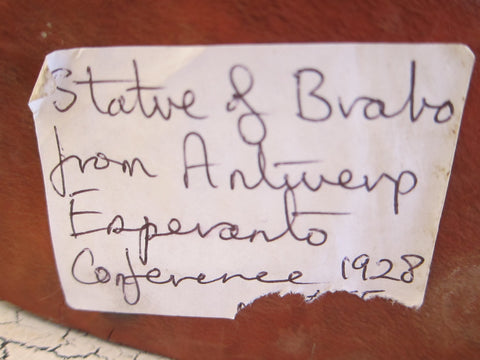 Statue of Brabo
from Antwerp
Esperanto
Conference 1928